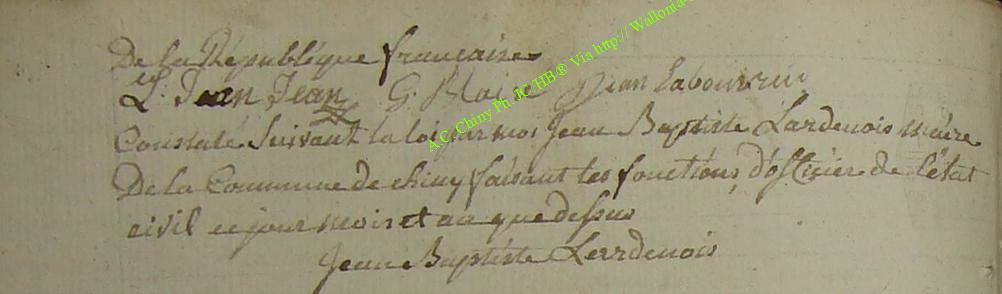 De la République francaise
L. Jean Jean G. Maise Jean Labourrin
Constaté suivant la loi par moi Jean Baptiste Lardenois maire
De la Commune de chiny faisant les fonctions d'officier de l'état
civil ce jour mois et an que dessus
Jean Baptiste Lardenois
A.C. Chiny Ph. JC/HB® Via http:// Wallonia-